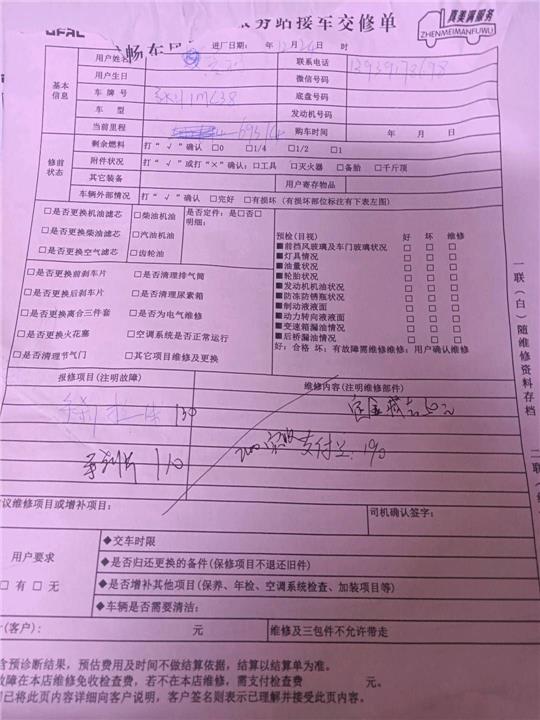 站接车交修单
真美满服务
ZHENMEIMANFUWU
进厂日期: 年 月 日 时
基本信息
用户姓名
联系电话
用户生日
微信号码
车牌号
底盘号码
车型
发动机号码
当前里程
购车时间 年 月 日
修前状态
剩余燃料 打“√”确认 □0 □1/4 □1/2 □1
附件状况 打“√”或打“×”确认:□工具 □灭火器 □备胎 □千斤顶
其它装备
用户寄存物品
车辆外部情况 打“√”确认 □完好 □有损坏(有损坏部位标注有下表左图)
□是否更换机油滤芯 □柴油机油 是否定件:是□否□
明细:
□是否更换柴油滤芯 □汽油机油
□是否更换空气滤芯 □齿轮油
□是否更换前刹车片 □是否清理排气筒
□是否更换后刹车片 □是否清理尿素箱
□是否更换离合三件套 □是否为电气维修
□是否更换火花塞 □空调系统是否正常运行
□是否清理节气门 □其它项目维修及更换
预检(目视) 好 坏 维修
■前挡风玻璃及车门玻璃状况 □ □ □
■灯具情况 □ □ □
■油量状况 □ □ □
■轮胎状况 □ □ □
■发动机机油状况 □ □ □
■防冻防锈瓶状况 □ □ □
■制动液液面 □ □ □
■动力转向液液面 □ □ □
■变速箱漏油情况 □ □ □
■后桥漏油情况 □ □ □
好:合格 坏:有故障需维修维修:用户确认维修
报修项目(注明故障)
维修内容(注明维修部件)
130
110
支付
190
议维修项目或增补项目:
司机确认签字:
用户要求
□有 □无
◆交车时限
◆是否归还更换的备件(保修项目不退还旧件)
◆是否增补其他项目(保养、年检、空调系统检查、加装项目等)
◆车辆是否需要清洁:
(客户): 元
维修及三包件不允许带走
含预诊断结果,预估费用及时间不做结算依据,结算以结算单为准。
故障在本店维修免收检查费,若不在本店维修,需支付检查费 元。
已将此页内容详细向客户说明,客户签名则表示已理解并接受此页内容。
一联(白)随维修资料存档
二联